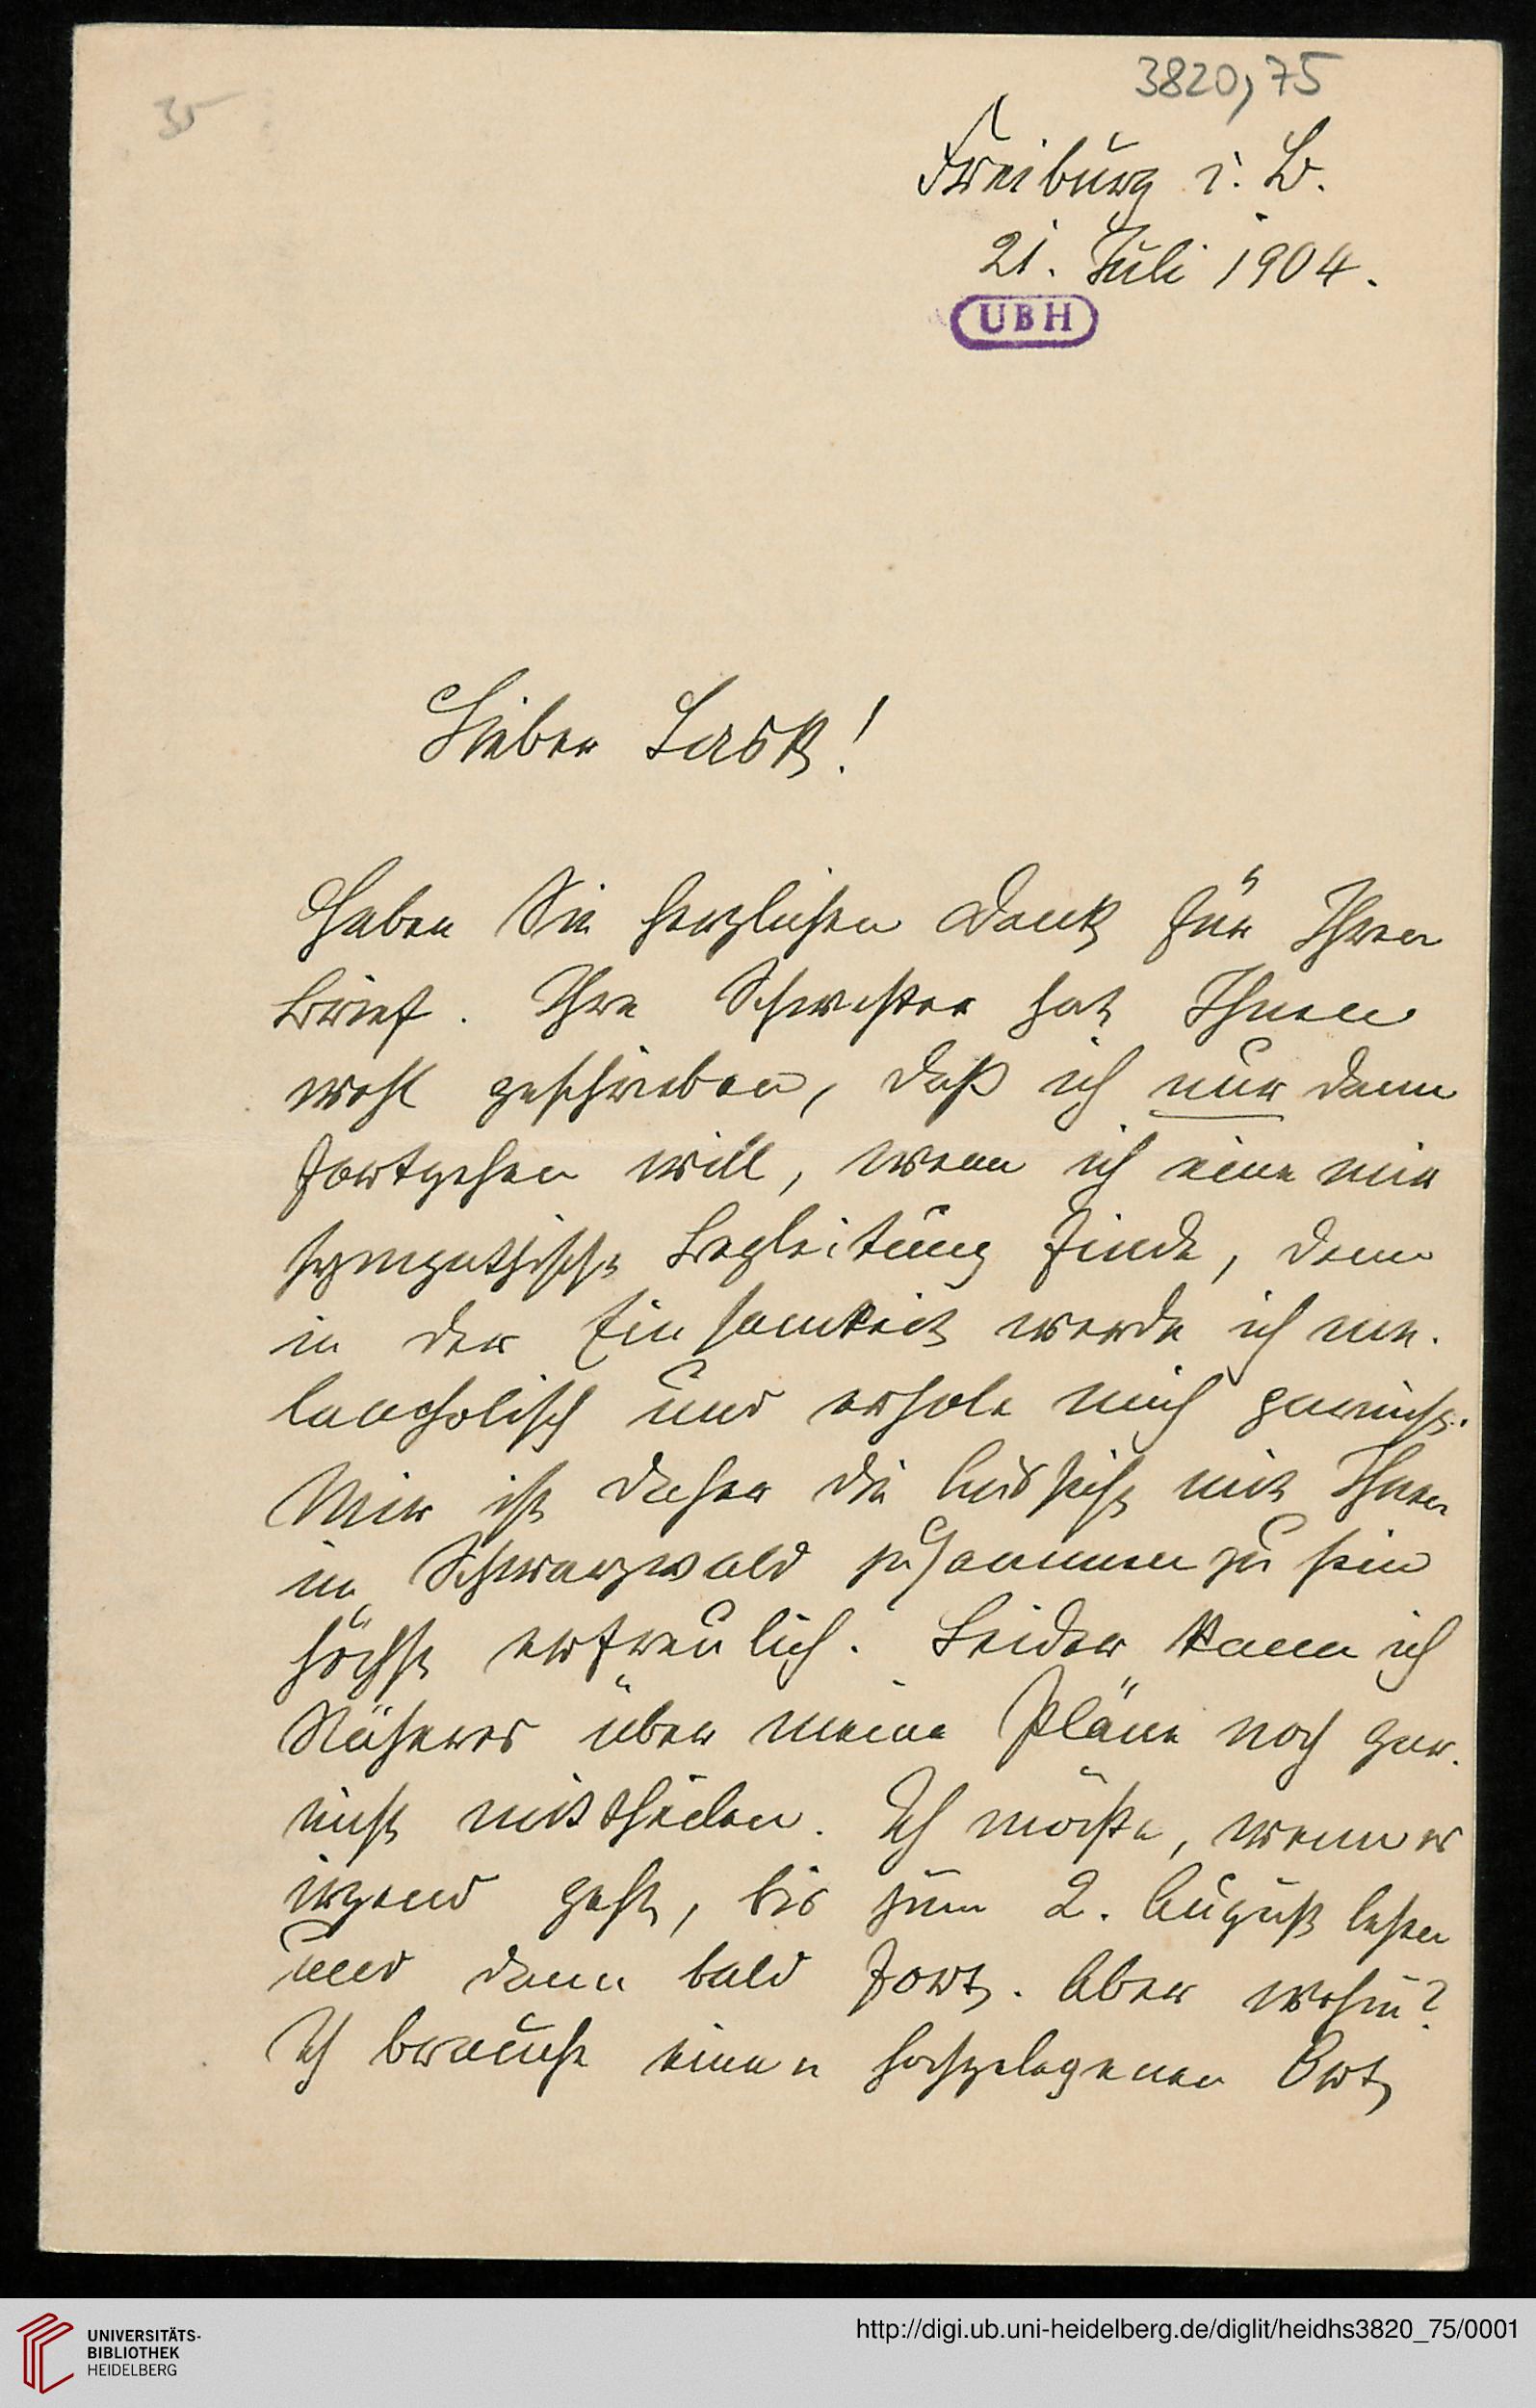 3820,75
35
Freiburg i. B.
21. Juli 1904.
UBH
Lieber Lask!
Haben Sie herzlichen Dank für Ihren
Brief. Ihre Schwester hat Ihnen
wohl geschrieben, daß ich nur dann
fortgehen will, wenn ich eine mir
sympathische Begleitung finde, denn
in der Einsamkeit werde ich me-
lancholisch und erhole mich garnicht.
Mir ist daher die Aussicht mit Ihnen
im Schwarzwald zusammen zu sein
höchst erfreulich. Leider kann ich
Näheres über meine Pläne noch gar-
nicht mittheilen. Ich möchte, wenn es
irgend geht, bis zum 2. August lesen
und dann bald fort. Aber wohin?
Ich brauche einen hochgelegenen Ort,
UNIVERSITÄTS-
BIBLIOTHEK
HEIDELBERG
http://digi.ub.uni-heidelberg.de/diglit/heidhs3820_75/0001